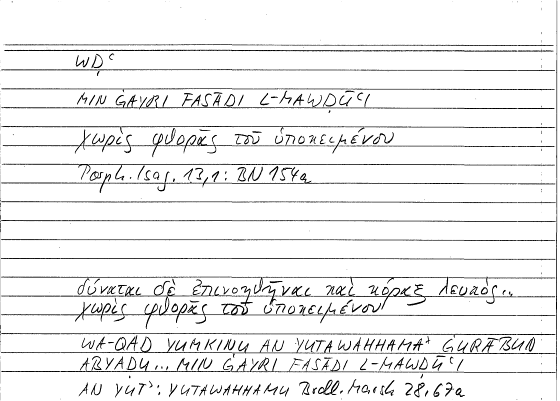 WḌʿ
MIN ĠAYRI FASĀDI L-MAWḌŪʿI
χωρὶς φθορᾶς τοῦ ὑποκειμένου
Porph. Isag. 13,1: BN 154a
δύναται δὲ ἐπινοηθῆναι καὶ κόραξ λευκός..
χωρὶς φθορᾶς τοῦ ὑποκειμένου
WA-QAD YUMKINU AN YUTAWAHHAMAˣ ĠURĀBUN
ABYAḌU... MIN ĠAYRI FASĀDI L-MAWḌŪʿI
AN YUT⁾: YUTAWAHHAMU Bodl. Marsh 28,67a